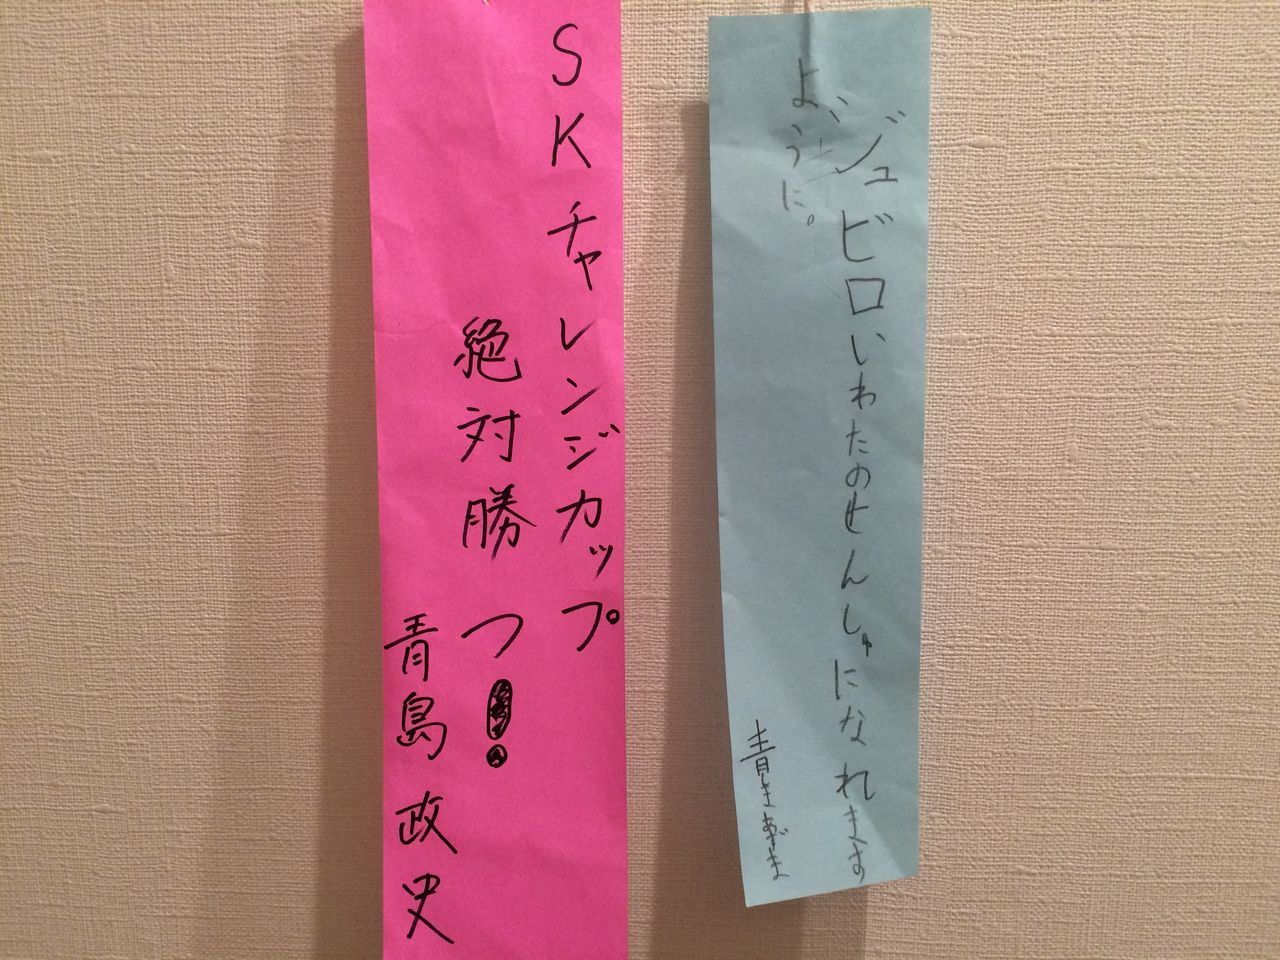 SKチャレンジカップ
絶対勝つ!
青島政史
ジュビロいわたのせんしゅになれます
ように。